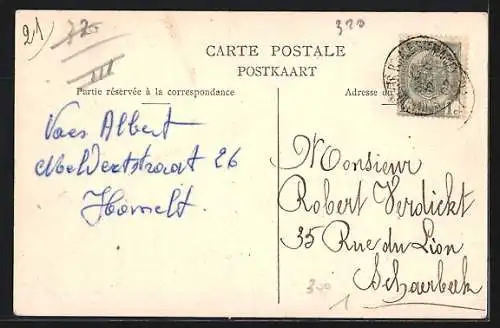 21
320
CARTE POSTALE
POSTKAART
Partie réservée à la correspondance
Adresse du
1c
Vaes Albert
Meldertstraat 26
Monsieur
Robert Verdickt
35 Rue du Lion
Schaerbeek
300
1